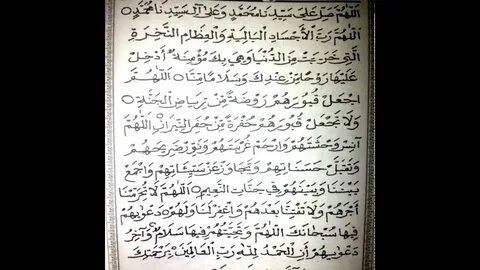 اَللّٰهُمَّ صَلِّ عَلَى سَيِّدِنَا مُحَمَّدٍ وَعَلَى آلِ سَيِّدِنَا مُحَمَّدٍ
اَللّٰهُمَّ رَبَّ الْأَجْسَادِ الْبَالِيَةِ وَالْعِظَامِ النَّخِرَةِ
الَّتِي خَرَجَتْ مِنَ الدُّنْيَا وَهِيَ بِكَ مُؤْمِنَةٌ أَدْخِلْ
عَلَيْهَا رَوْحًا مِنْ عِنْدِكَ وَسَلَامًا مِنَّا اَللّٰهُمَّ
اجْعَلْ قُبُورَهُمْ رَوْضَةً مِنْ رِيَاضِ الْجَنَّةِ
وَلَا تَجْعَلْ قُبُورَهُمْ حُفْرَةً مِنْ حُفَرِ النِّيرَانِ اَللّٰهُمَّ
آنِسْ وَحْشَتَهُمْ وَارْحَمْ غُرْبَتَهُمْ وَنَوِّرْ ضَرِيحَهُمْ
وَتَقَبَّلْ حَسَنَاتِهِمْ وَتَجَاوَزْ عَنْ سَيِّئَاتِهِمْ وَاجْمَعْ
بَيْنَنَا وَبَيْنَهُمْ فِي جَنَّاتِ النَّعِيمِ اَللّٰهُمَّ لَا تَحْرِمْنَا
أَجْرَهُمْ وَلَا تَفْتِنَّا بَعْدَهُمْ وَاغْفِرْ لَنَا وَلَهُمْ دَعْوَيهُمْ
فِيهَا سُبْحَانَكَ اللّٰهُمَّ وَتَحِيَّتُهُمْ فِيهَا سَلَامٌ وَآخِرُ
دَعْوَيهُمْ أَنِ الْحَمْدُ لِلّٰهِ رَبِّ الْعَالَمِينَ بِرَحْمَتِكَ